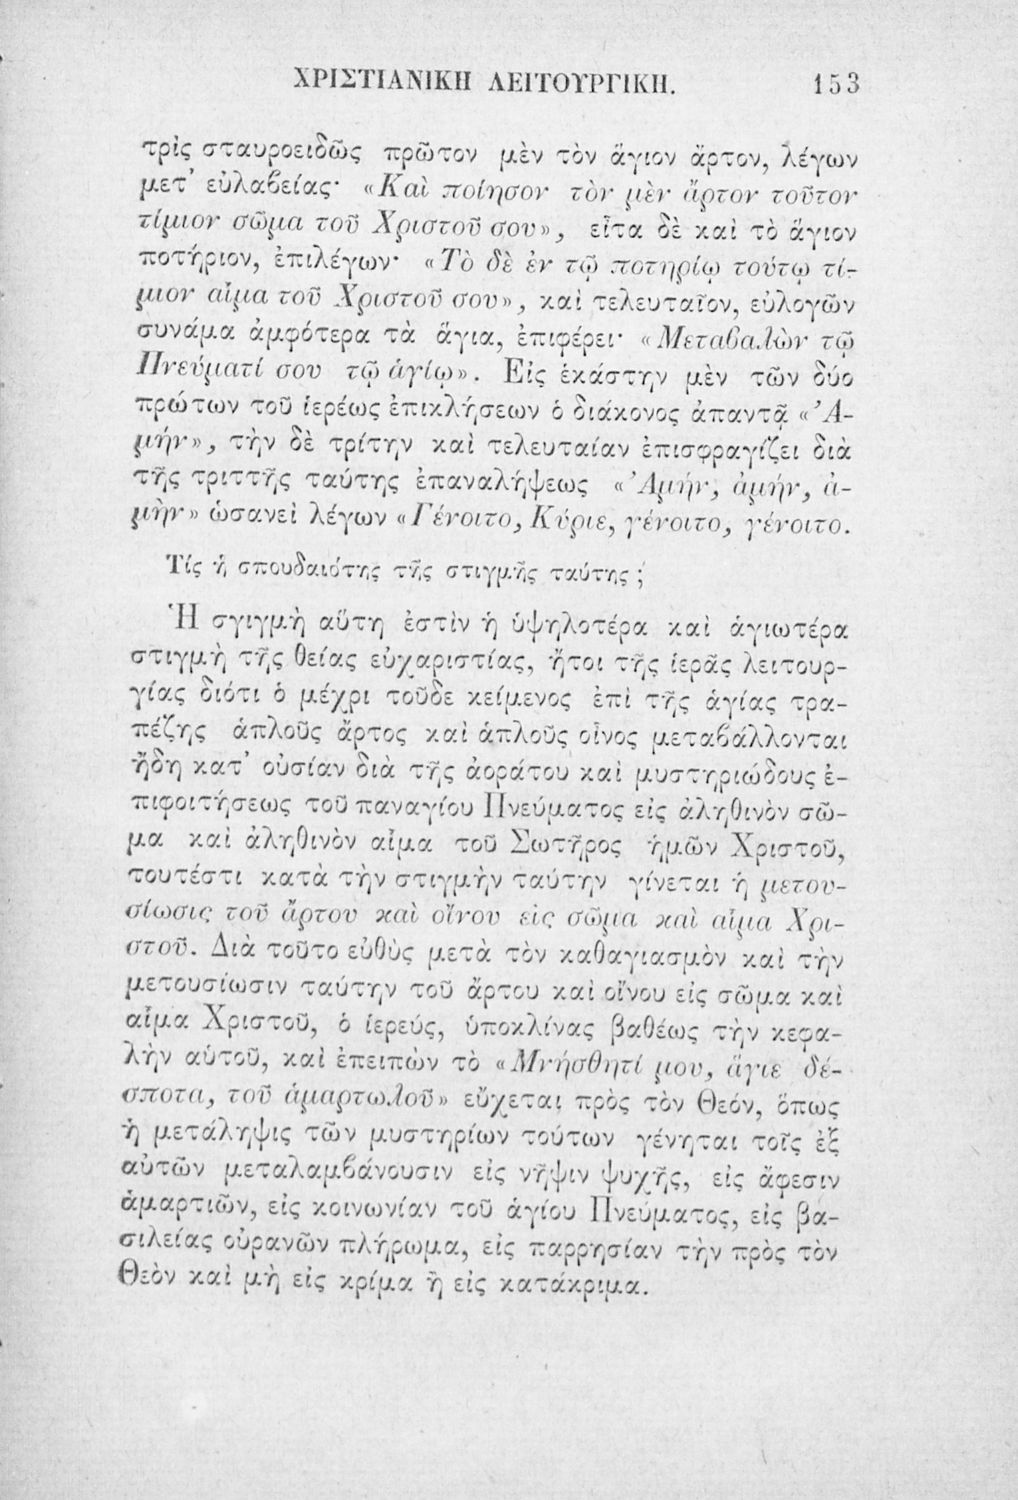 ΧΡΙΣΤΙΑΝΙΚΗ ΛΕΙΤΟΥΡΓΙΚΗ. 153
τρὶς σταυροειδῶς πρῶτον μὲν τὸν ἅγιον ἄρτον, λέγων
μετ' εὐλαβείας· «Καὶ ποίησον τὸν μὲν ἄρτον τοῦτον
τίμιον σῶμα τοῦ Χριστοῦ σου», εἶτα δὲ καὶ τὸ ἅγιον
ποτήριον, ἐπιλέγων· «Τὸ δὲ ἐν τῷ ποτηρίῳ τούτῳ τί-
μιον αἷμα τοῦ Χριστοῦ σου», καὶ τελευταῖον, εὐλογῶν
συνάμα ἀμφότερα τὰ ἅγια, ἐπιφέρει· «Μεταβαλὼν τῷ
Πνεύματί σου τῷ ἁγίῳ». Εἰς ἑκάστην μὲν τῶν δύο
πρώτων τοῦ ἱερέως ἐπικλήσεων ὁ διάκονος ἀπαντᾷ «Ἀ-
μήν», τὴν δὲ τρίτην καὶ τελευταίαν ἐπισφραγίζει διὰ
τῆς τριττῆς ταύτης ἐπαναλήψεως «Ἀμήν, ἀμήν, ἀ-
μὴν» ὡσανεὶ λέγων «Γένοιτο, Κύριε, γένοιτο, γένοιτο.
Τίς ἡ σπουδαιότης τῆς στιγμῆς ταύτης ;
Ἡ σγιγμὴ αὕτη ἐστὶν ἡ ὑψηλοτέρα καὶ ἁγιωτέρα
στιγμὴ τῆς θείας εὐχαριστίας, ἤτοι τῆς ἱερᾶς λειτουρ-
γίας διότι ὁ μέχρι τοῦδε κείμενος ἐπὶ τῆς ἁγίας τρα-
πέζης ἁπλοῦς ἄρτος καὶ ἁπλοῦς οἶνος μεταβάλλονται
ἤδη κατ' οὐσίαν διὰ τῆς ἀοράτου καὶ μυστηριώδους ἐ-
πιφοιτήσεως τοῦ παναγίου Πνεύματος εἰς ἀληθινὸν σῶ-
μα καὶ ἀληθινὸν αἷμα τοῦ Σωτῆρος ἡμῶν Χριστοῦ,
τουτέστι κατὰ τὴν στιγμὴν ταύτην γίνεται ἡ μετου-
σίωσις τοῦ ἄρτου καὶ οἴνου εἰς σῶμα καὶ αἷμα Χρι-
στοῦ. Διὰ τοῦτο εὐθὺς μετὰ τὸν καθαγιασμὸν καὶ τὴν
μετουσίωσιν ταύτην τοῦ ἄρτου καὶ οἴνου εἰς σῶμα καὶ
αἷμα Χριστοῦ, ὁ ἱερεύς, ὑποκλίνας βαθέως τὴν κεφα-
λὴν αὑτοῦ, καὶ ἐπειπὼν τὸ «Μνήσθητί μου, ἅγιε δέ-
σποτα, τοῦ ἁμαρτωλοῦ» εὔχεται πρὸς τὸν Θεόν, ὅπως
ἡ μετάληψις τῶν μυστηρίων τούτων γένηται τοῖς ἐξ
αὐτῶν μεταλαμβάνουσιν εἰς νῆψιν ψυχῆς, εἰς ἄφεσιν
ἁμαρτιῶν, εἰς κοινωνίαν τοῦ ἁγίου Πνεύματος, εἰς βα-
σιλείας οὐρανῶν πλήρωμα, εἰς παρρησίαν τὴν πρὸς τὸν
Θεὸν καὶ μὴ εἰς κρίμα ἢ εἰς κατάκριμα.